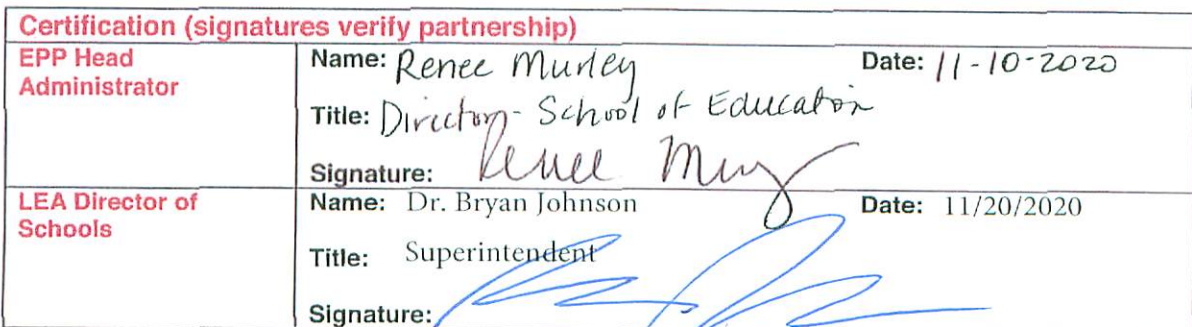 Certification (signatures verify partnership)
EPP Head Administrator
Name: Renee Murley Date: 11-10-2020
Title: Director - School of Education
Signature: Renee
LEA Director of Schools
Name: Dr. Bryan Johnson Date: 11/20/2020
Title: Superintendent
Signature: